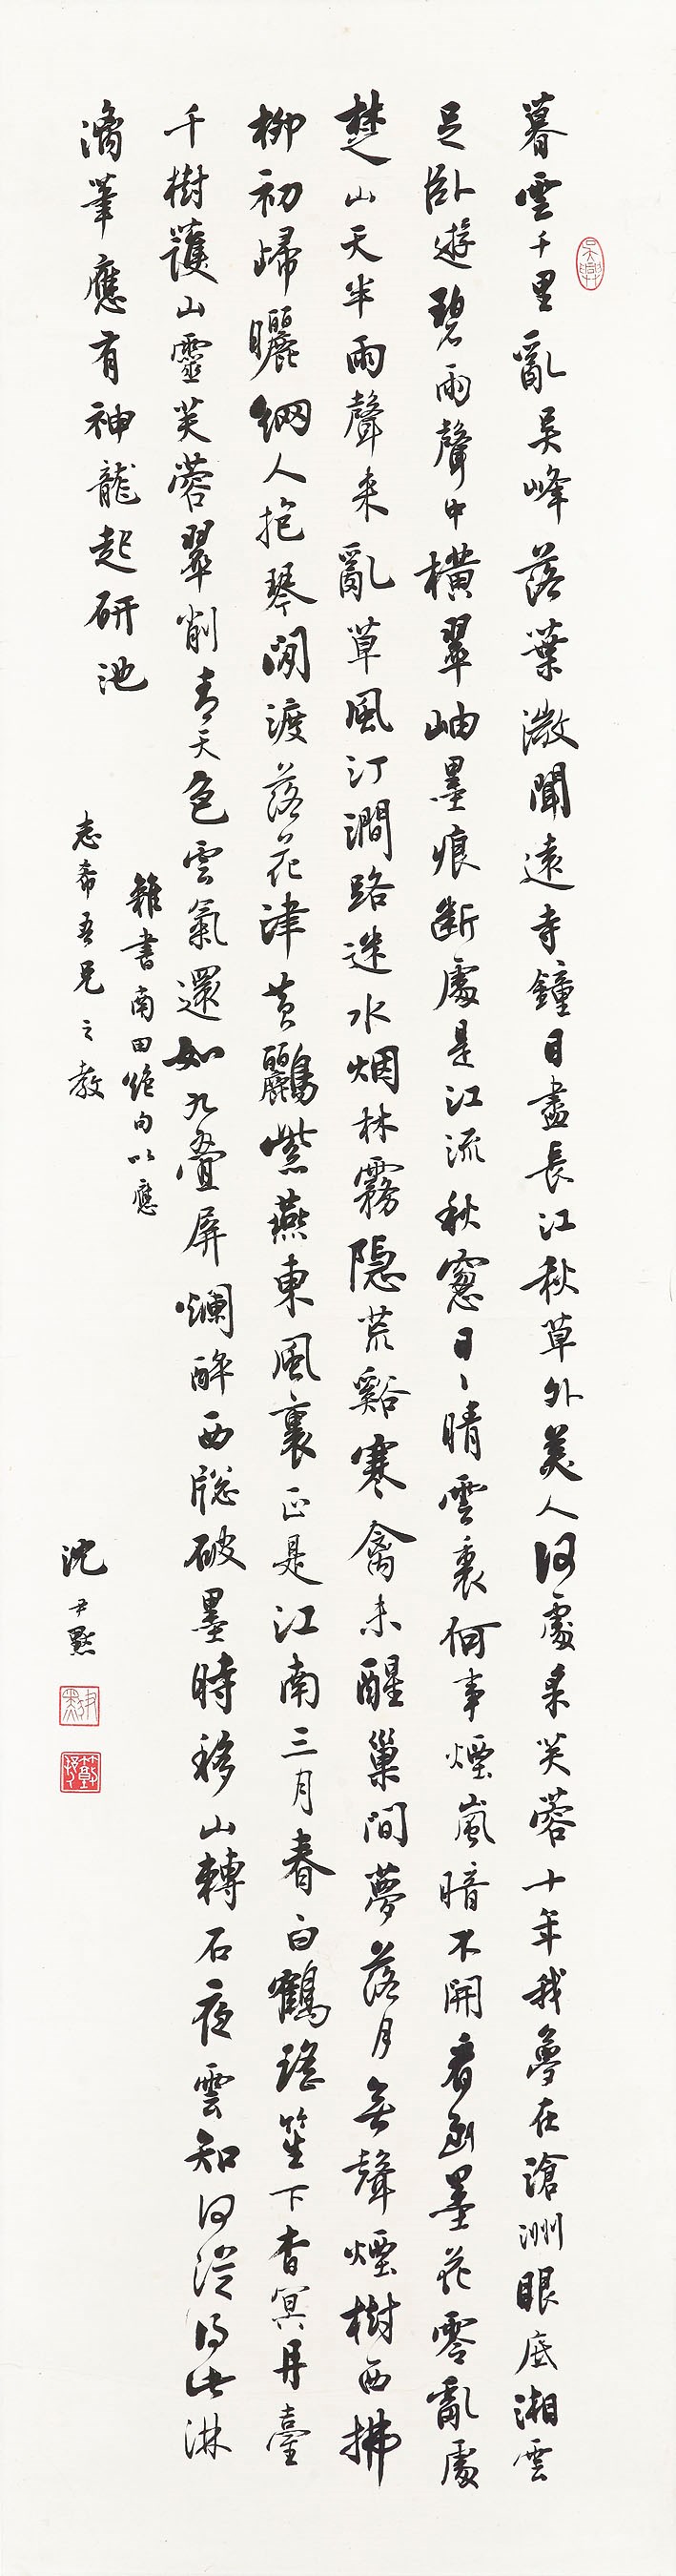 暮雲千里亂吳峰落葉微聞遠寺鐘目盡長江秋草外美人何處采芙蓉十年我夢在滄洲眼底湘雲
足臥遊碧雨聲中橫翠岫墨痕斷處是江流秋窗日〻晴雲裹何事煙嵐暗不開看到墨花零亂處
楚山天半雨聲來亂草風汀澗路迷水烟林霧隐荒谿寒禽未醒巢間夢落月無聲煙樹西拂
柳初歸曬網人抱琴閒渡落花津黄鸝紫燕東風裏正是江南三月春白鶴瑤笙下杳冥丹臺
千樹護山靈芙蓉翠削青天色雲氣還如九疊屏爛醉西牕破墨時移山轉石夜雲知何從得此淋
漓筆應有神龍起研池
雜書南田絶句以應
志希吾兄之教
沈尹默
吳興